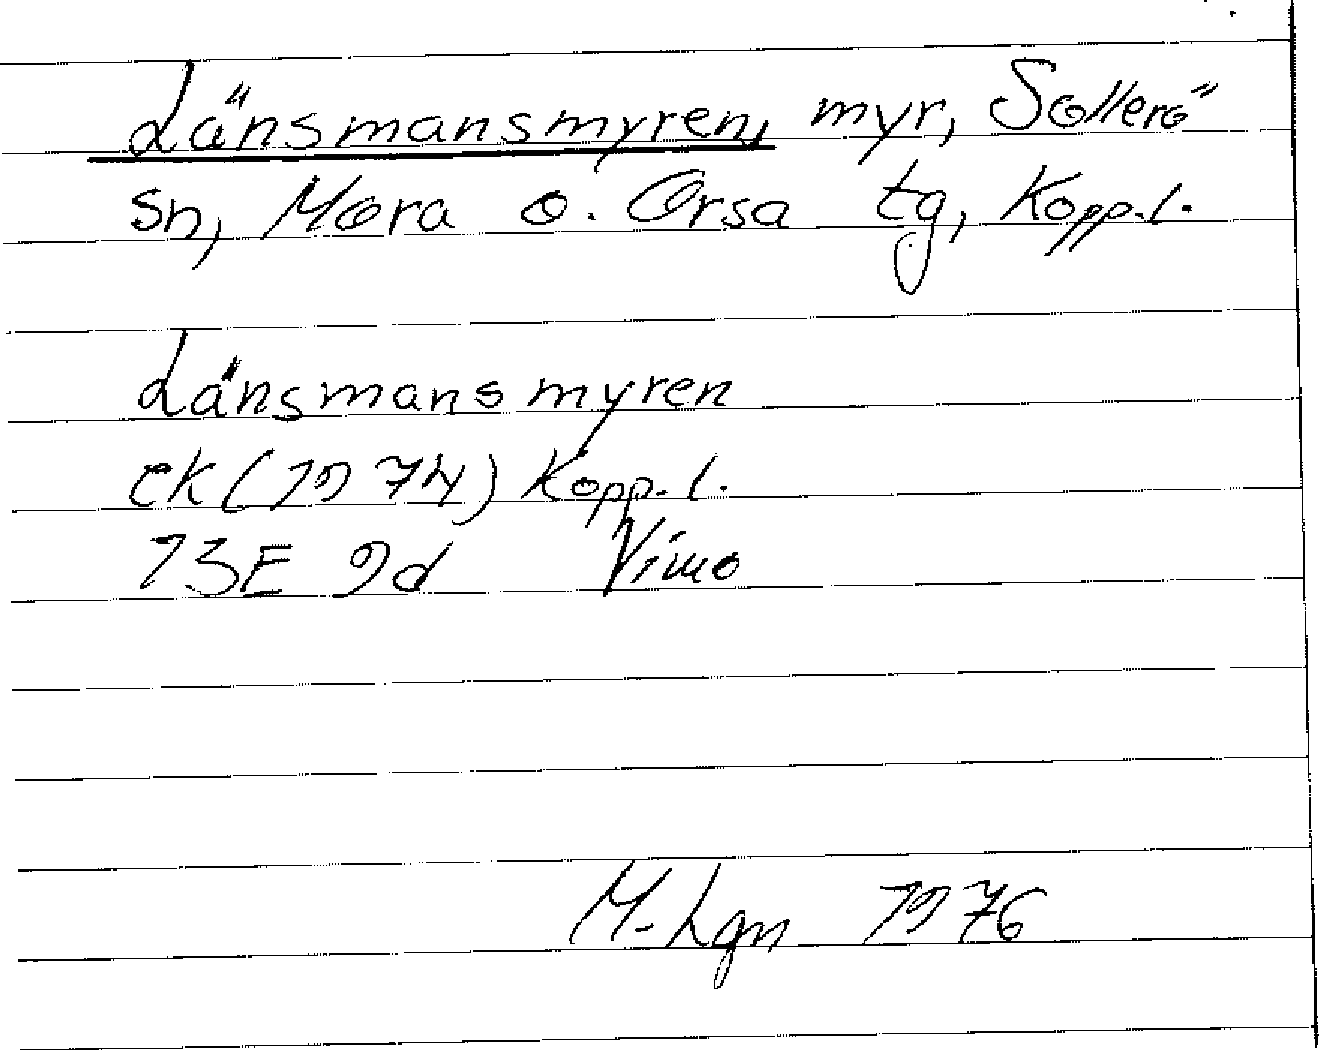 Länsmansmyren, myr, Sollerö
sn, Mora o. Orsa tg, Kopp.l.
Länsmansmyren
ek (1974) Kopp.l.
13E 9d Vimo
M-Lgn 1976